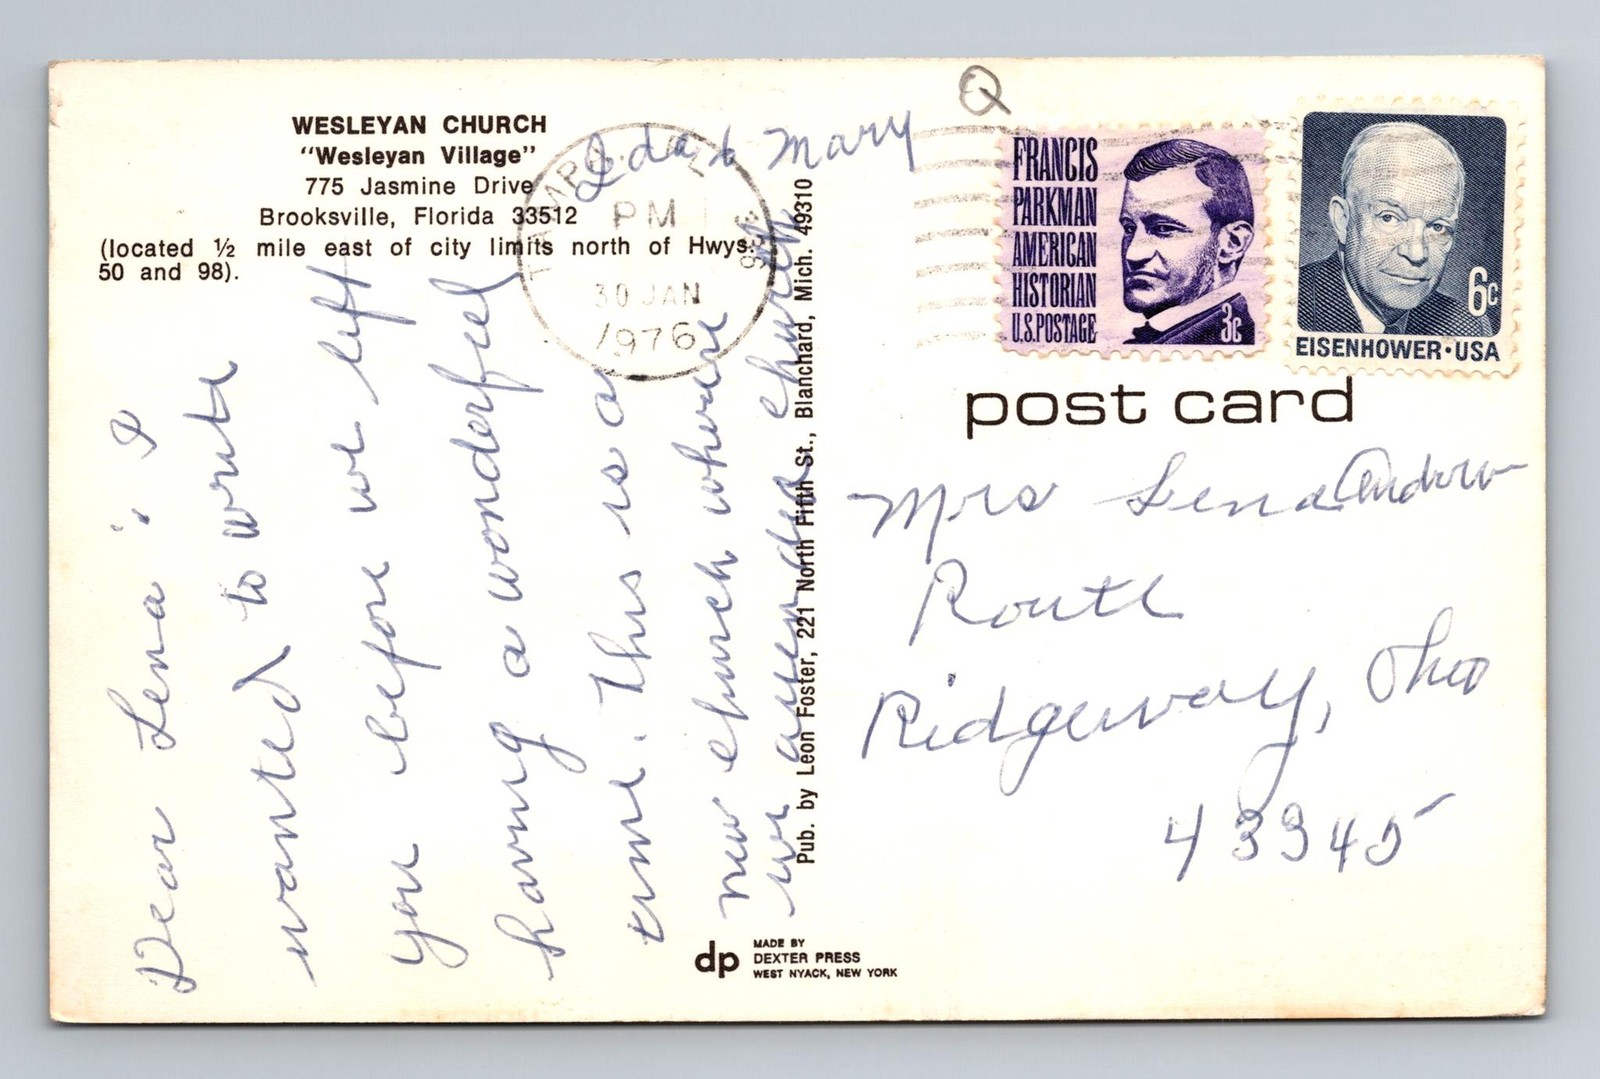 WESLEYAN CHURCH
"Wesleyan Village"
775 Jasmine Drive
Brooksville, Florida 33512
(located ½ mile east of city limits north of Hwys.
50 and 98).
TAMPA, FL
PM
30 JAN
1976
Q
FRANCIS
PARKMAN
AMERICAN
HISTORIAN
U.S. POSTAGE
3c
6c
EISENHOWER·USA
post card
Dear Lena; I
wanted to write
you before we left
having a wonderful
time. This is a
new church where
we attended church
Ida & Mary
Pub. by Leon Foster, 221 North Fifth St., Blanchard, Mich. 49310
Mrs Lena Andrew
Route
Ridgeway, Ohio
43345
dp
MADE BY
DEXTER PRESS
WEST NYACK, NEW YORK